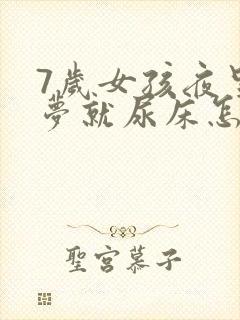 7歲女孩夜里
夢就尿床怎
聖宮慕子